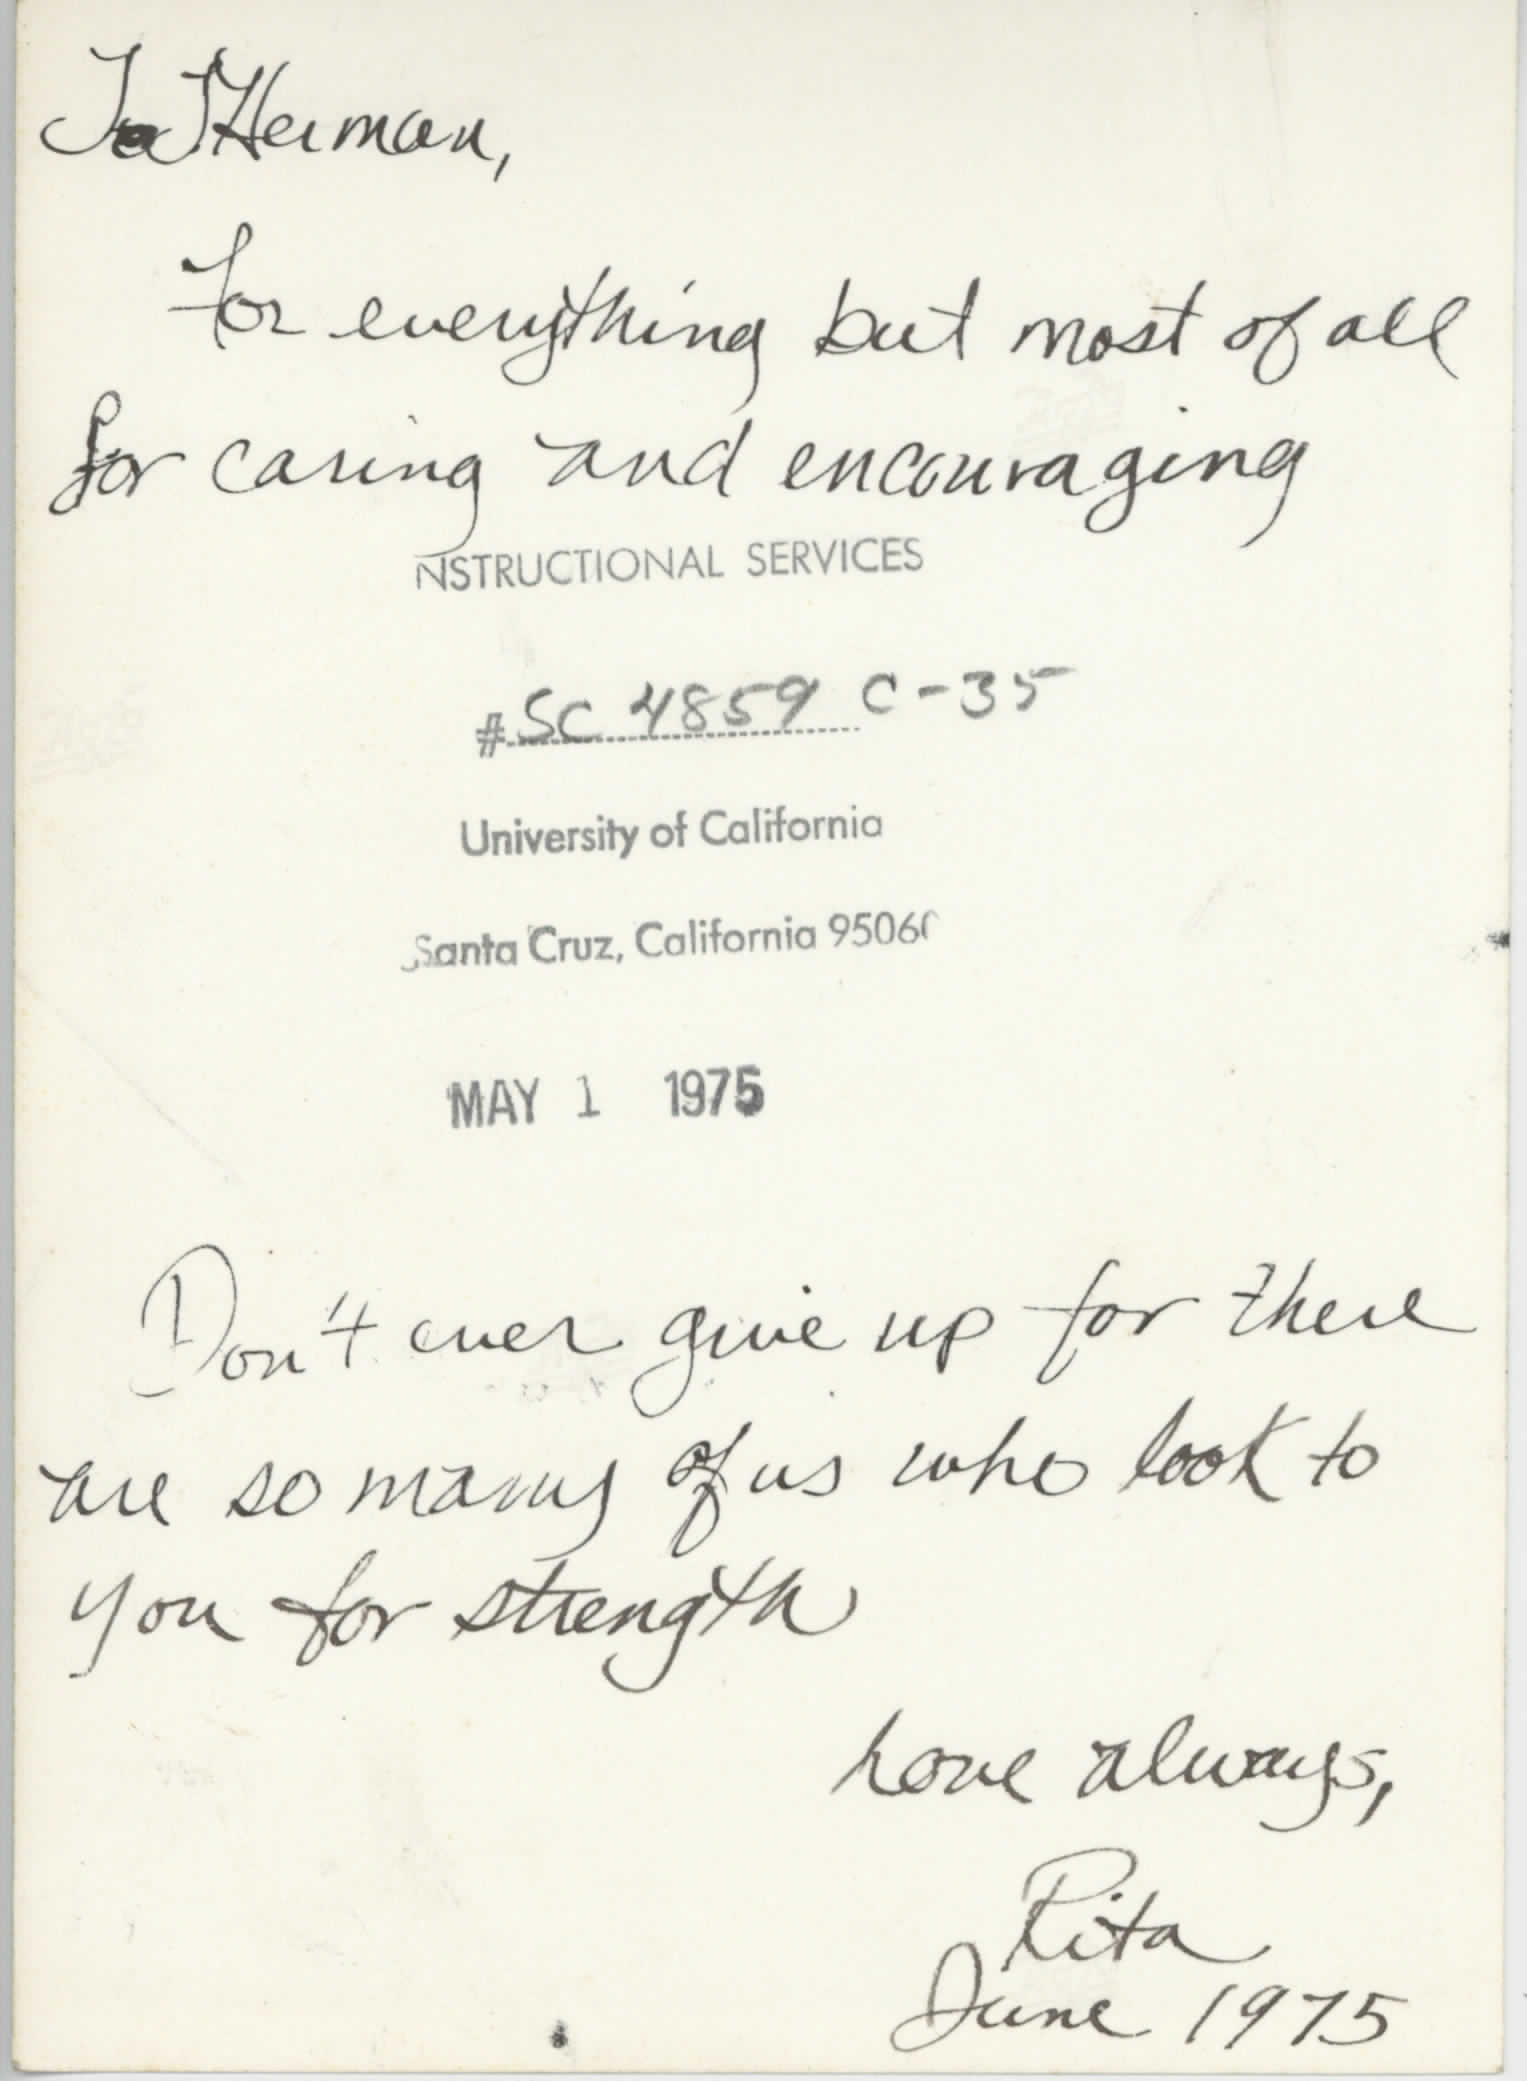 To Herman,
For everything but most of all
for caring and encouraging
NSTRUCTIONAL SERVICES
# SC 4859 C-35
University of California
Santa Cruz, California 95060
MAY 1 1975
Don't ever give up for there
are so many of us who look to
you for strength
Love always,
Rita
June 1975